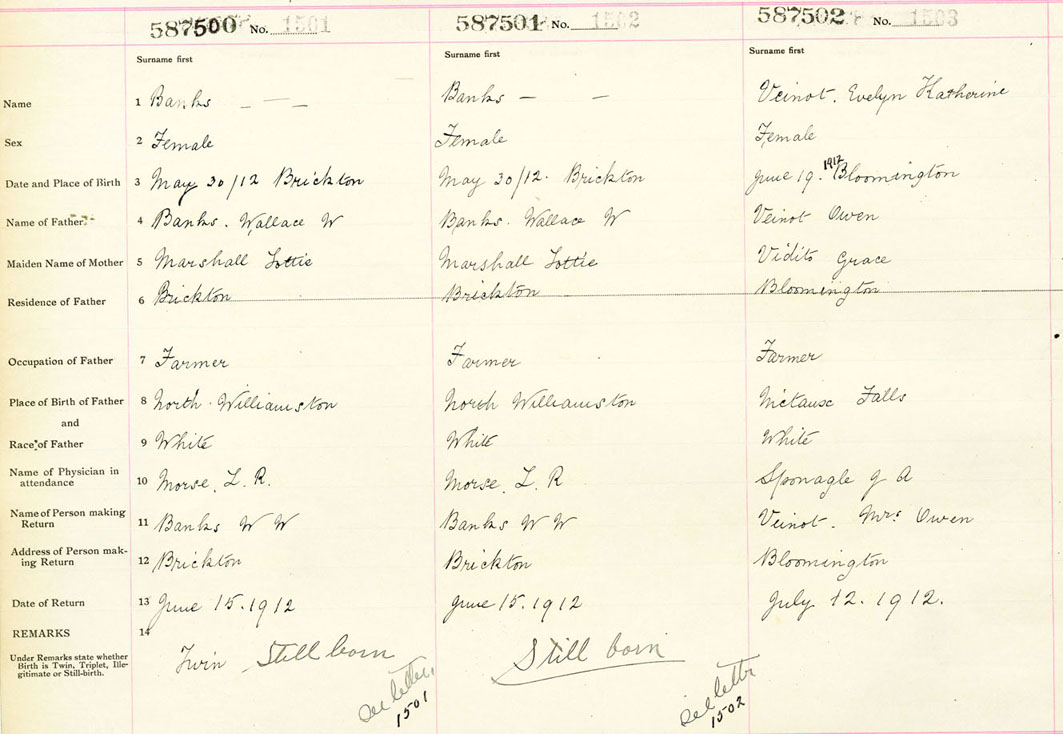 587500 No. 1501 587501 No. 1502 587502 No. 1503
Surname first Surname first Surname first
Name 1 Banks — — Banks — — Veinot. Evelyn Katherine
Sex 2 Female Female Female
Date and Place of Birth 3 May 30/12 Brickton May 30/12. Brickton June 19. 1912 Bloomington
Name of Father 4 Banks. Wallace W Banks. Wallace W Veinot Owen
Maiden Name of Mother 5 Marshall Lottie Marshall Lottie Vidito Grace
Residence of Father 6 Brickton Brickton Bloomington
Occupation of Father 7 Farmer Farmer Farmer
Place of Birth of Father 8 North Williamston North Williamston Nictaux Falls
and
Race of Father 9 White White White
Name of Physician in
attendance 10 Morse, L. R. Morse, L. R Sponagle J A
Name of Person making
Return 11 Banks W W Banks W W Veinot. Mrs. Owen
Address of Person mak-
ing Return 12 Brickton Brickton Bloomington
Date of Return 13 June 15. 1912 June 15. 1912 July 12. 1912.
REMARKS 14
Under Remarks state whether
Birth is Twin, Triplet, Ille-
gitimate or Still-birth.
Twin Still born Still born
see letter 1501 see letter 1502